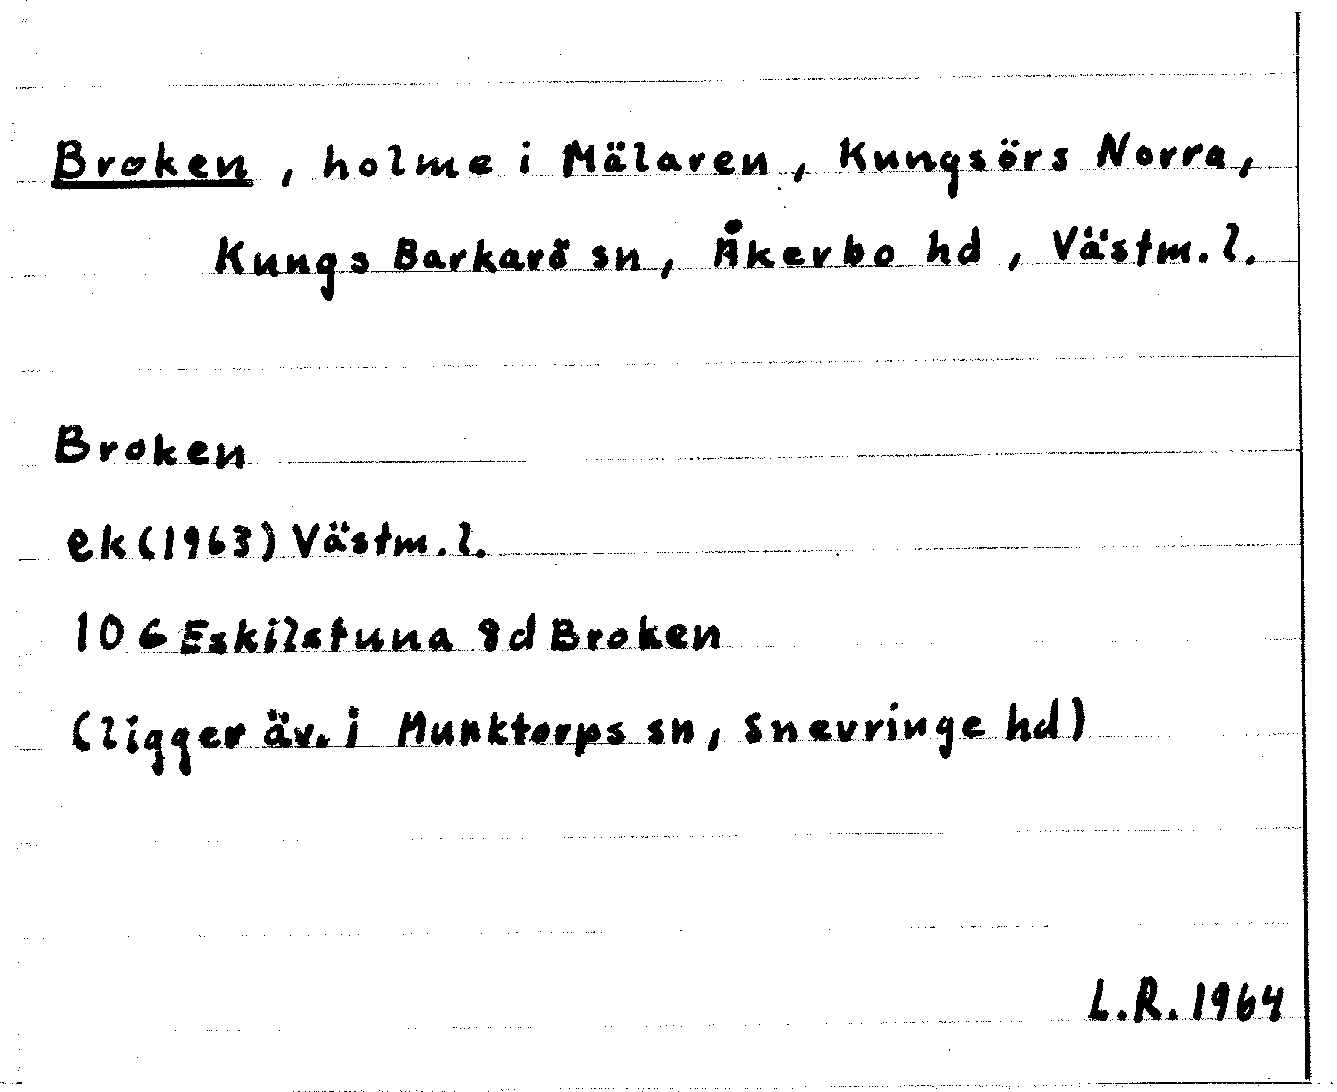 Broken, holme i Mälaren, Kungsörs Norra,
Kungs Barkarö sn, Åkerbo hd, Västm. l.
Broken
ek (1963) Västm. l.
10 G Eskilstuna 8d Broken
(ligger äv. i Munktorps sn, Snevringe hd)
L.R. 1964